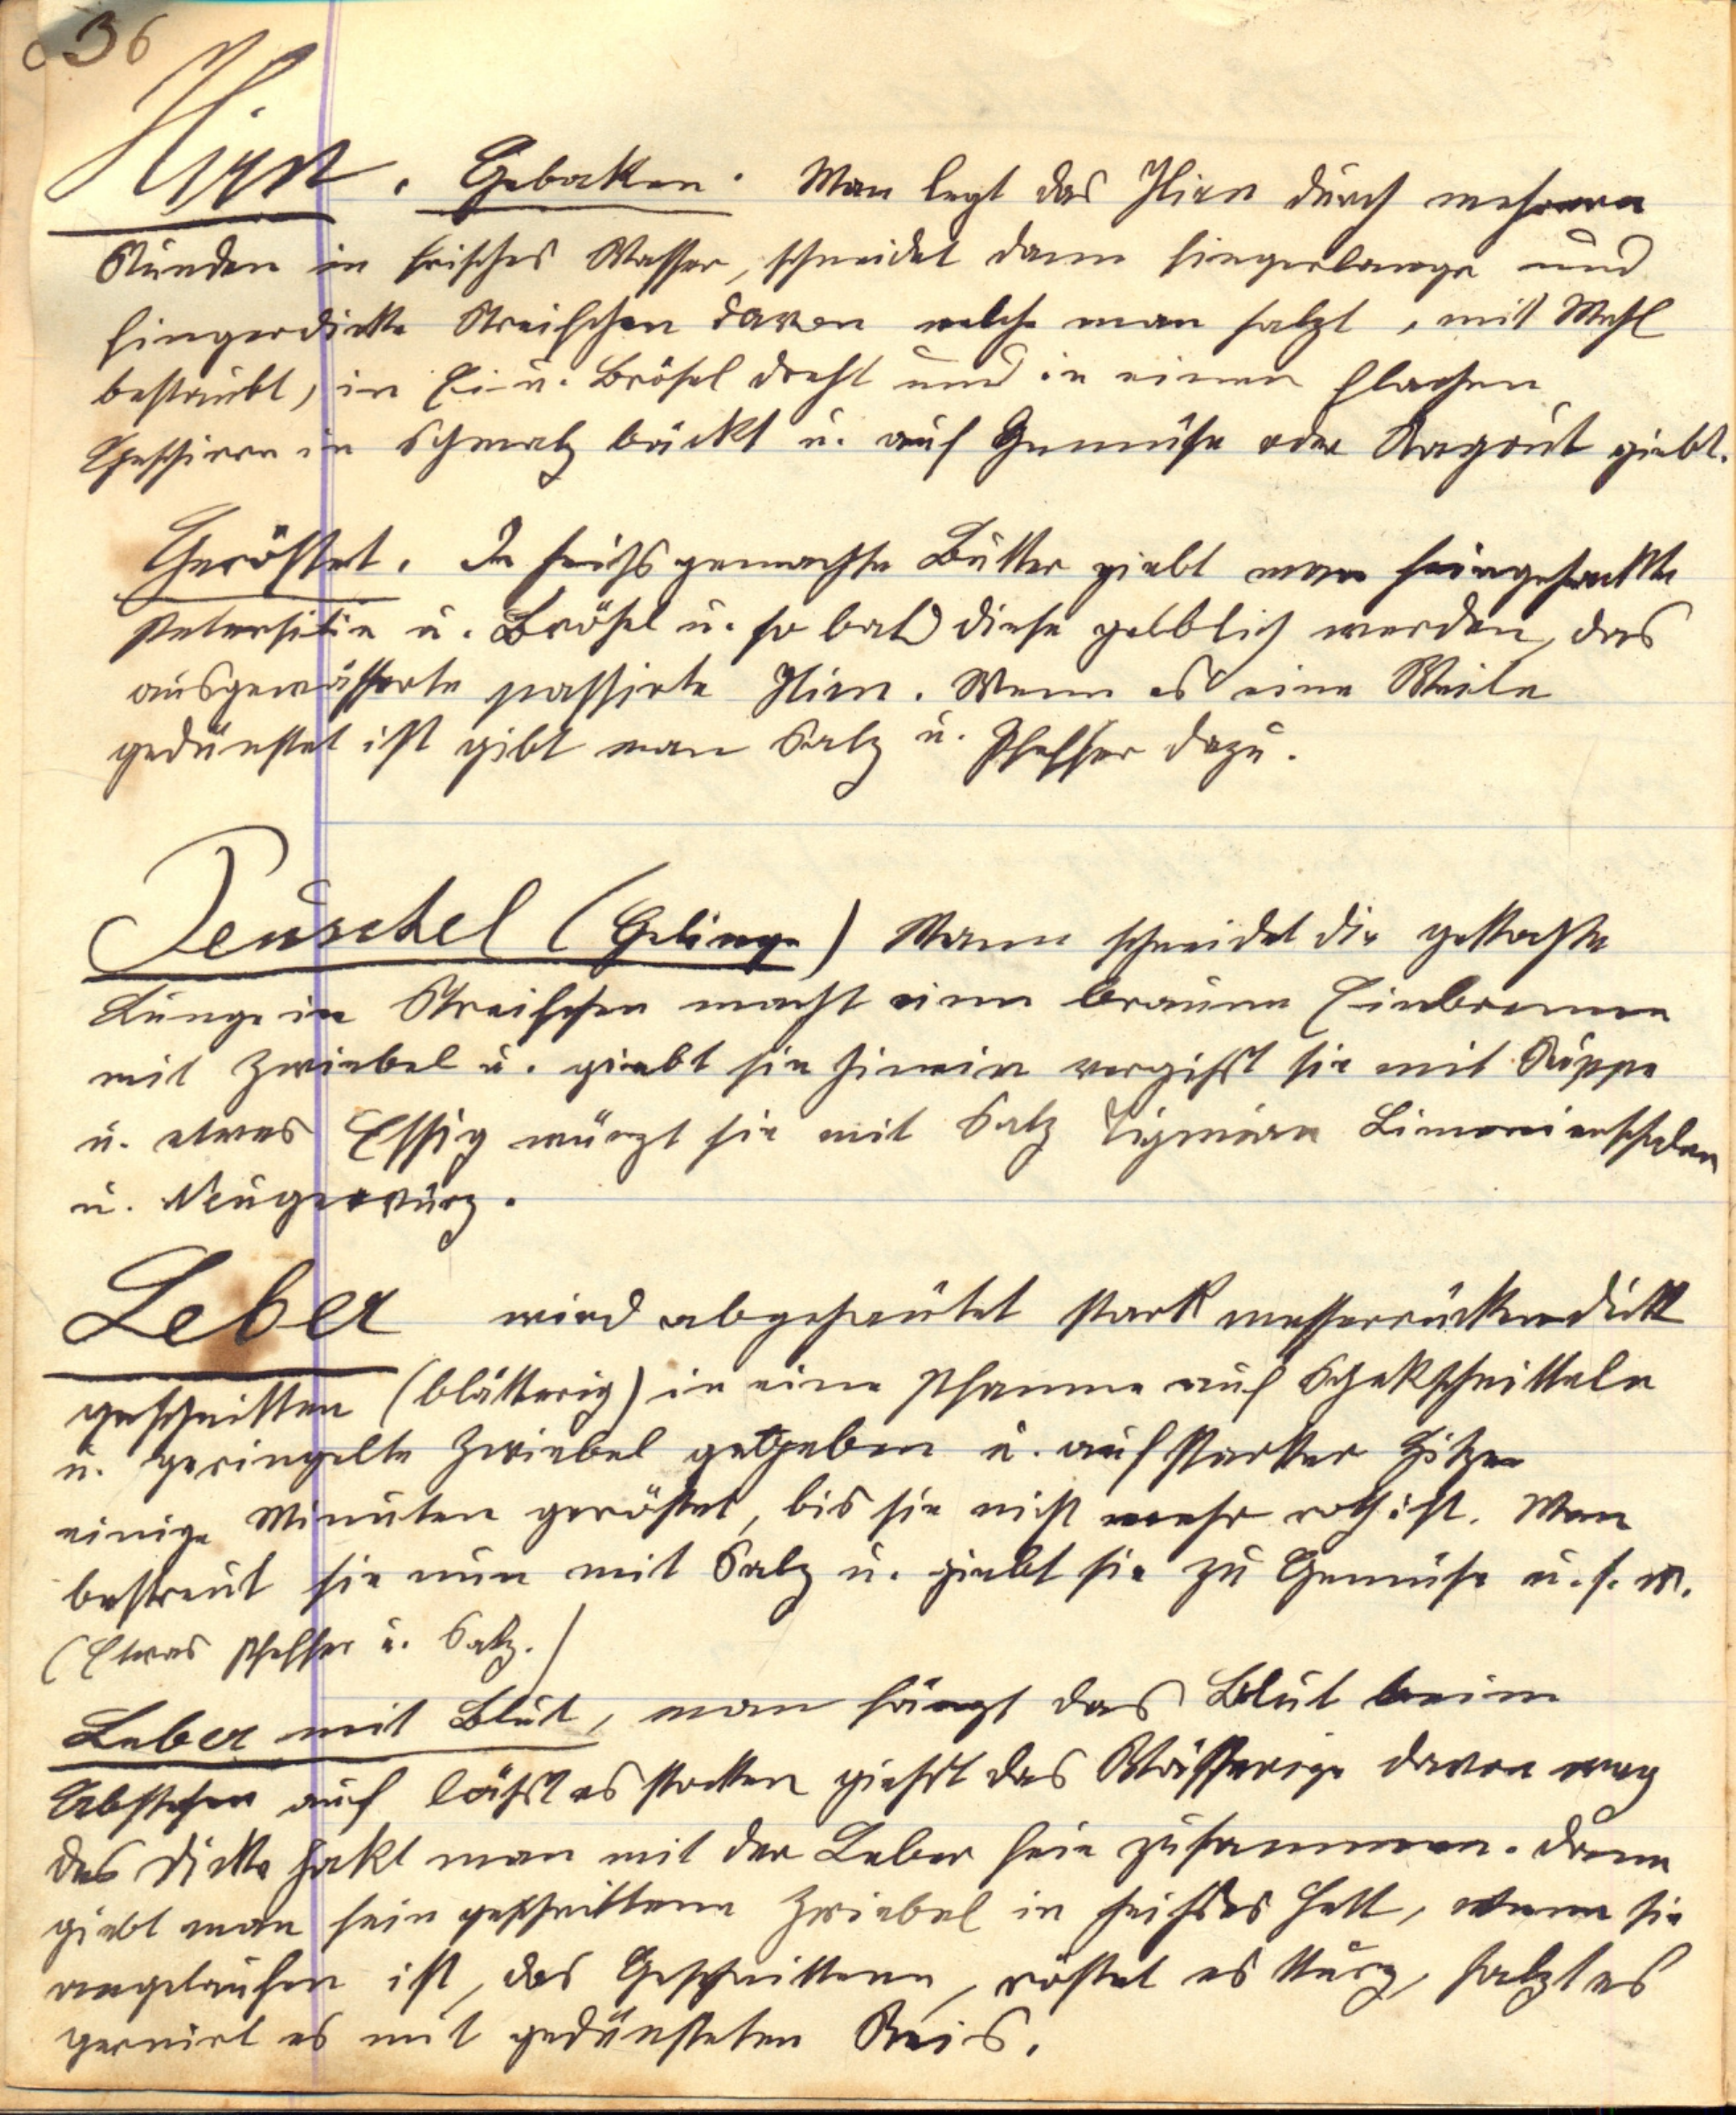 36
Hirn. Gebakken. Man legt das Hirn durch mehrere
Stunden in frisches Wasser, schneidet dann fingerlange und
fingerdikke Streifchen davon welche man salzt, mit Mehl
bestaubt, in Ei u. Brösel dreht und in einen flachen
Geschirre in Schmalz bäckt u. auf Gemüse oder Ragout giebt.
Geröstet. In heißgemachte Butter giebt man feingehakkte
Petersilie u. Brösel u. so bald diese gelblich werden, das
ausgewässerte passirte Hirn. Wenn es eine Weile
gedünstet ist gibt man Salz u. Pfeffer dazu.
Peuschel (Gelinge) Mann schneidet die gekkochte
Lunge in Streifchen macht einen braune Einbrenne
mit Zwiebel u. giebt sie hinein vergißt sie mit Suppe
u. etwas Essig würzt sie mit Salz Limonienschalen
u. Neugewürz.
Leber wird abgehäutet stark messerrückkendikk
geschnitten (blätterig) in eine Pfanne auf Spekschnitteln
u. geringelte Zwiebel gegeben u. auf starkker Hitze
einige Minuten geröstet, bis sie nicht mehr roth ist. Man
bestreut sie nun mit Salz u. giebt sie zu Gemüse u. s. w.
(Etwas Pfeffer u. Salz.)
Leber mit Blut, man fängt das Blut beim
Abstechen auf läßt es stokken gießt das Wässerige davon weg
das Dikke hakt man mit der Leber fein zusammen. Dann
giebt man fein geschnittene Zwiebel in heißes Fett, wenn sie
angelaufen ist, das Geschnittene, röstet es kkurz, salzt es
garnirt es mit gedünsteten Reis.